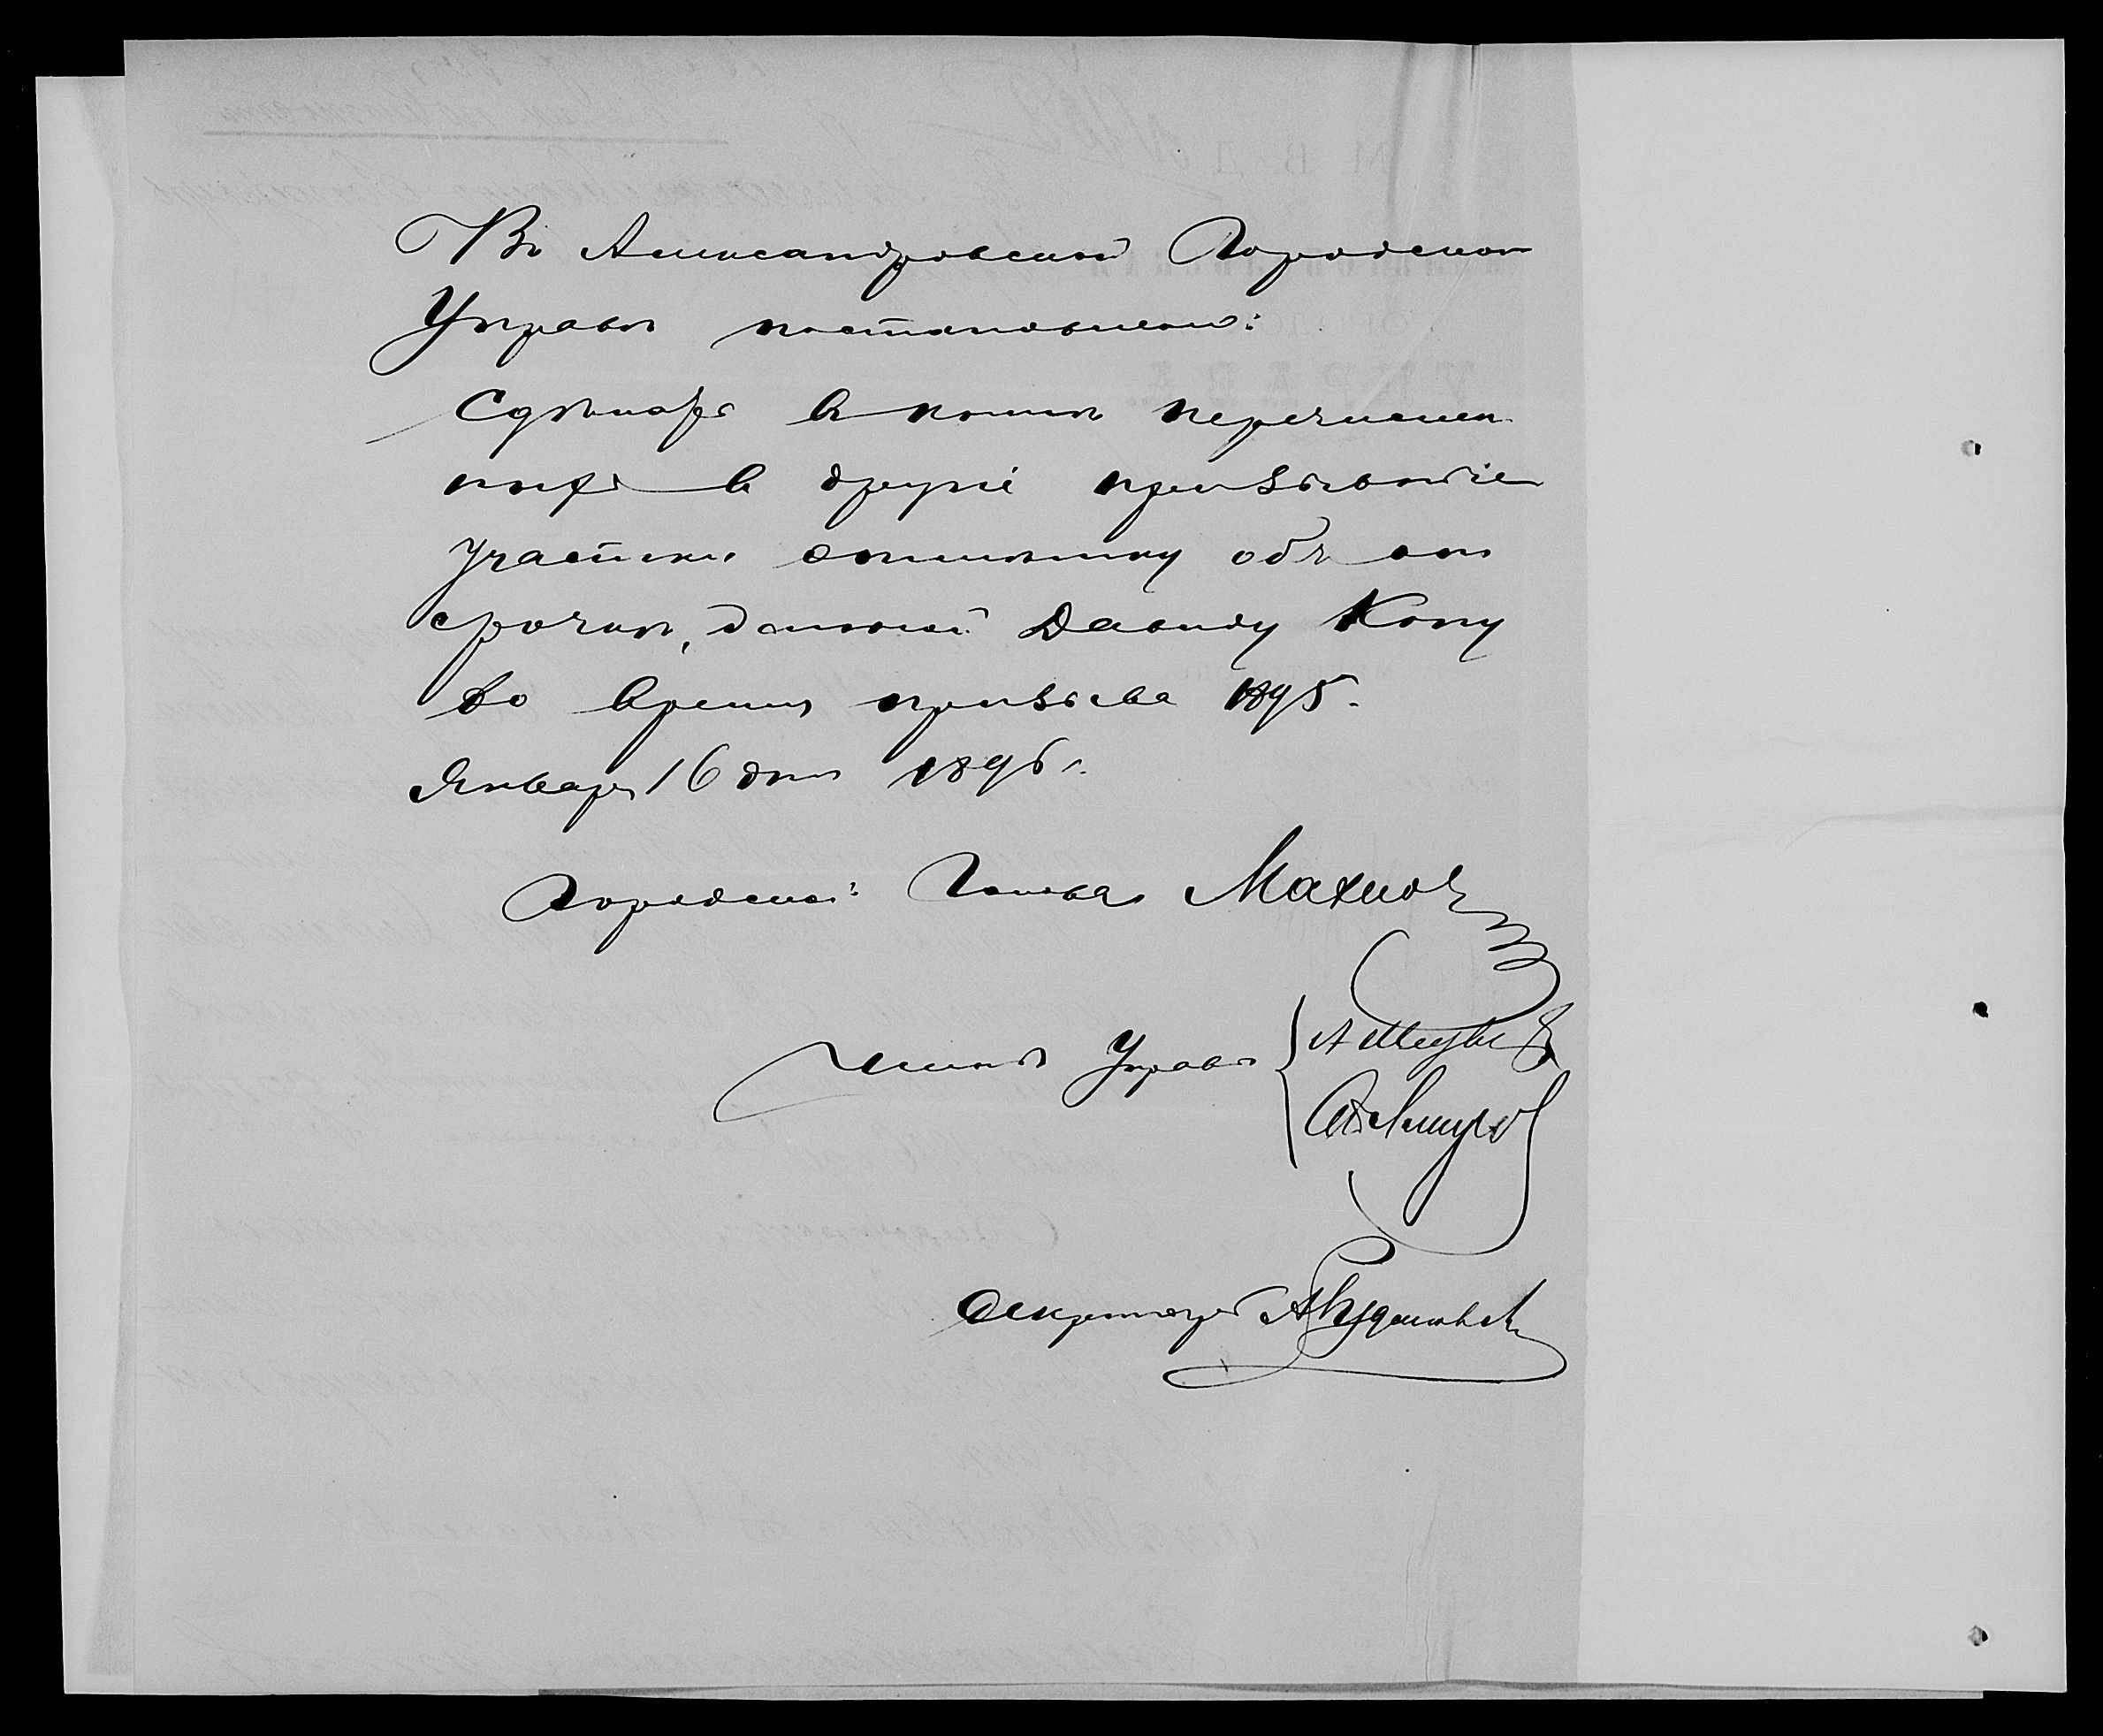 Въ Александровской Городской
Управѣ постановлено:
Сдѣлать въ книгѣ перечислен-
ныхъ въ другіе призывные
участки отмѣтку объ от-
срочкѣ, данной Давиду Кону
во время призыва 1895.
Января 16 дня 1896 г.
Городской Голова Махно
Члены Управы
Секретарь А